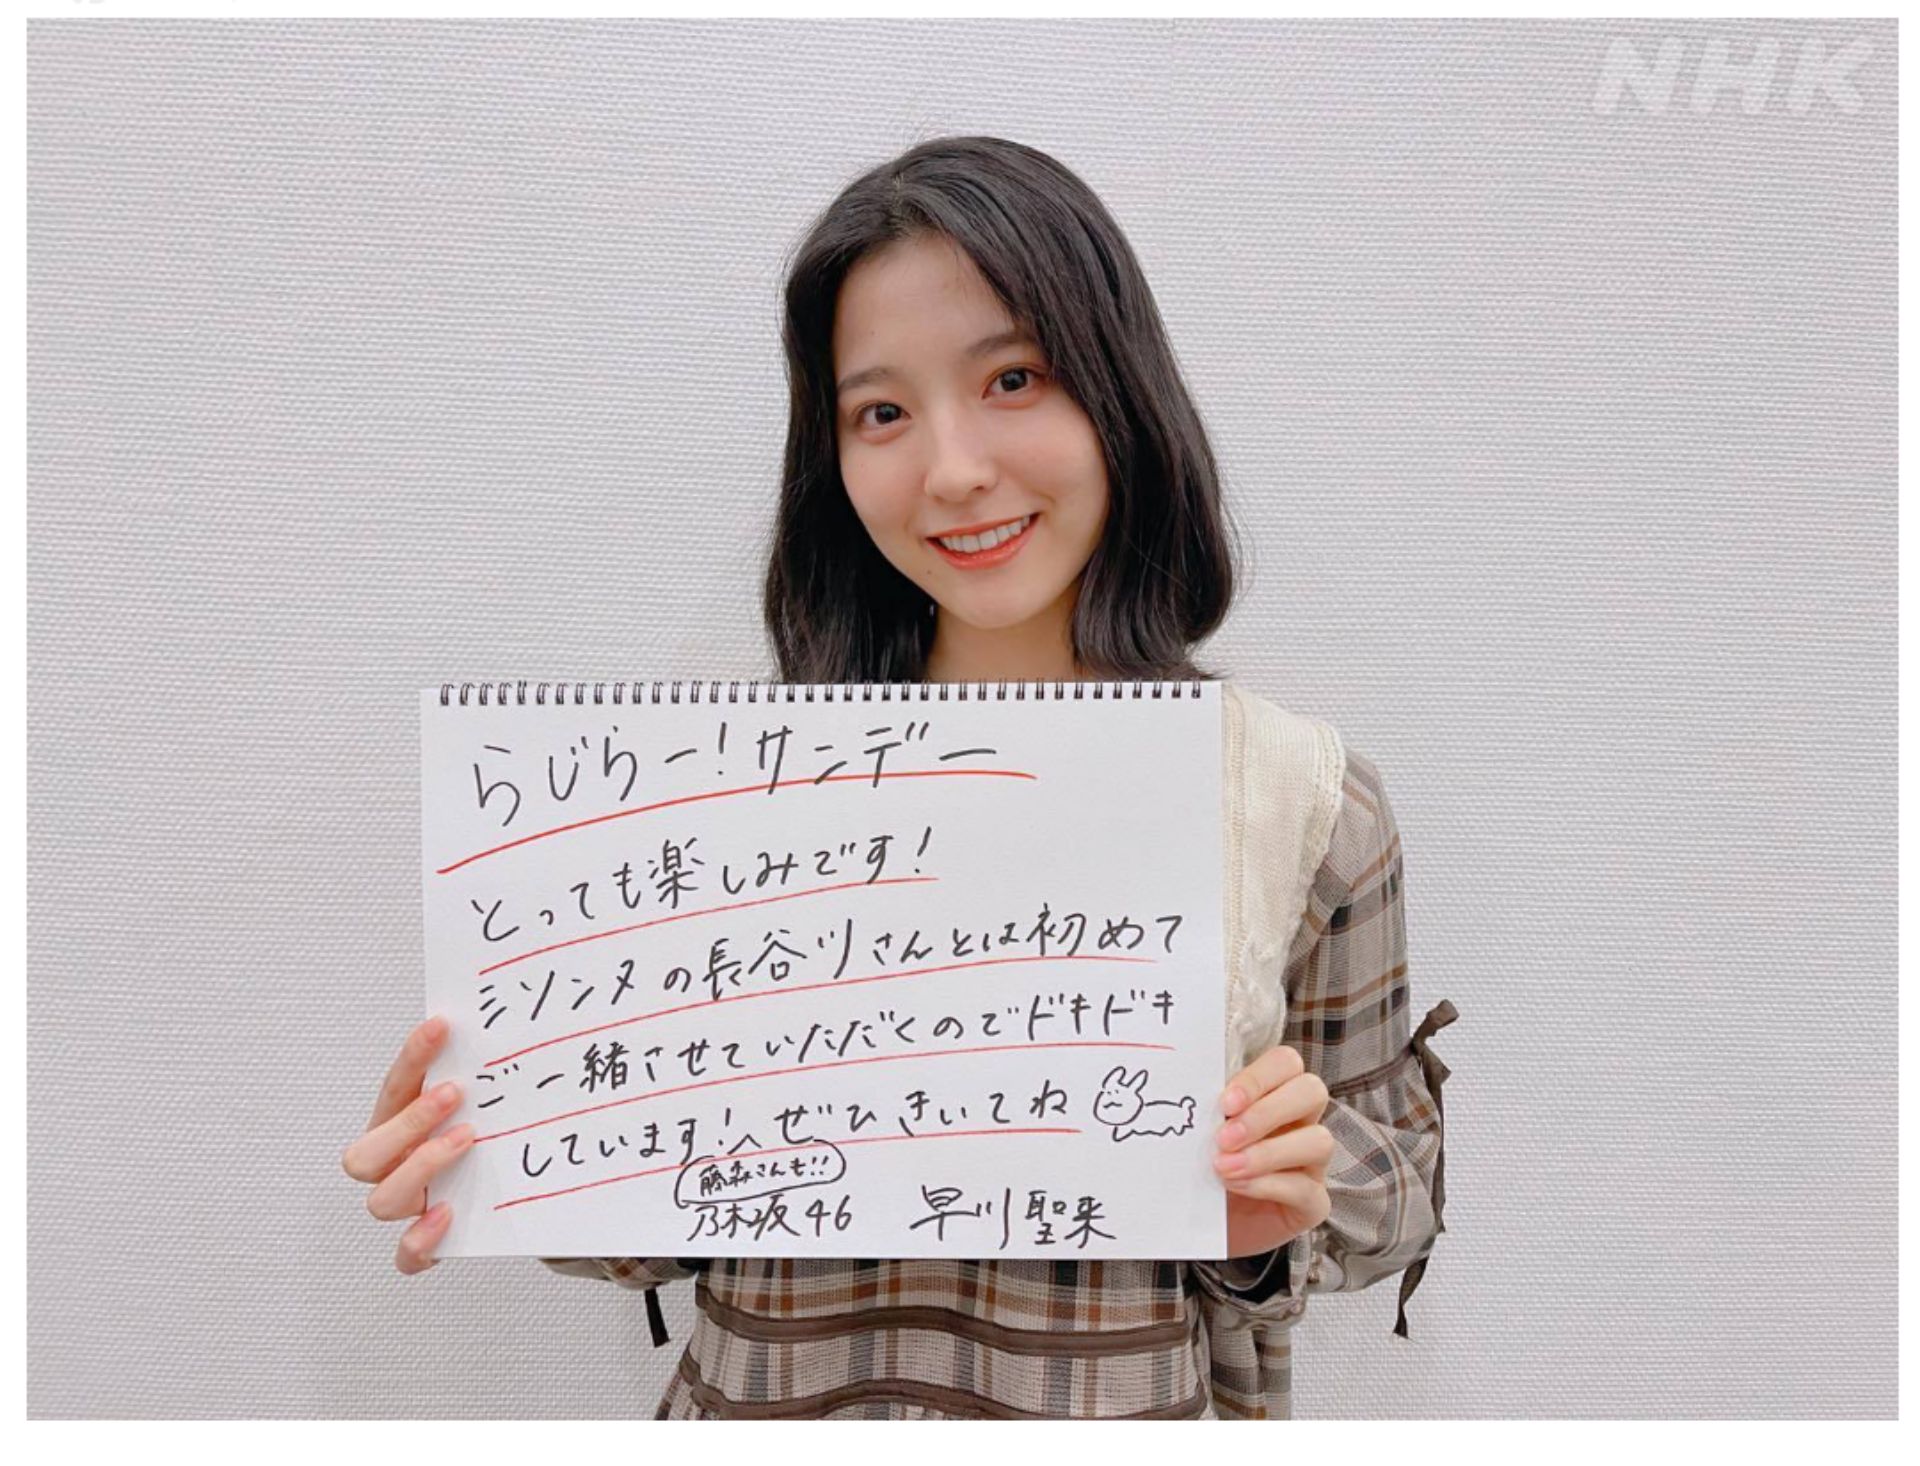 NHK
らじらー!サンデー
とっても楽しみです!
ミソンヌの長谷川さんとは初めて
ご一緒させていただくのでドキドキ
しています!ぜひきいてね
藤森さんも!!
乃木坂46 早川聖来